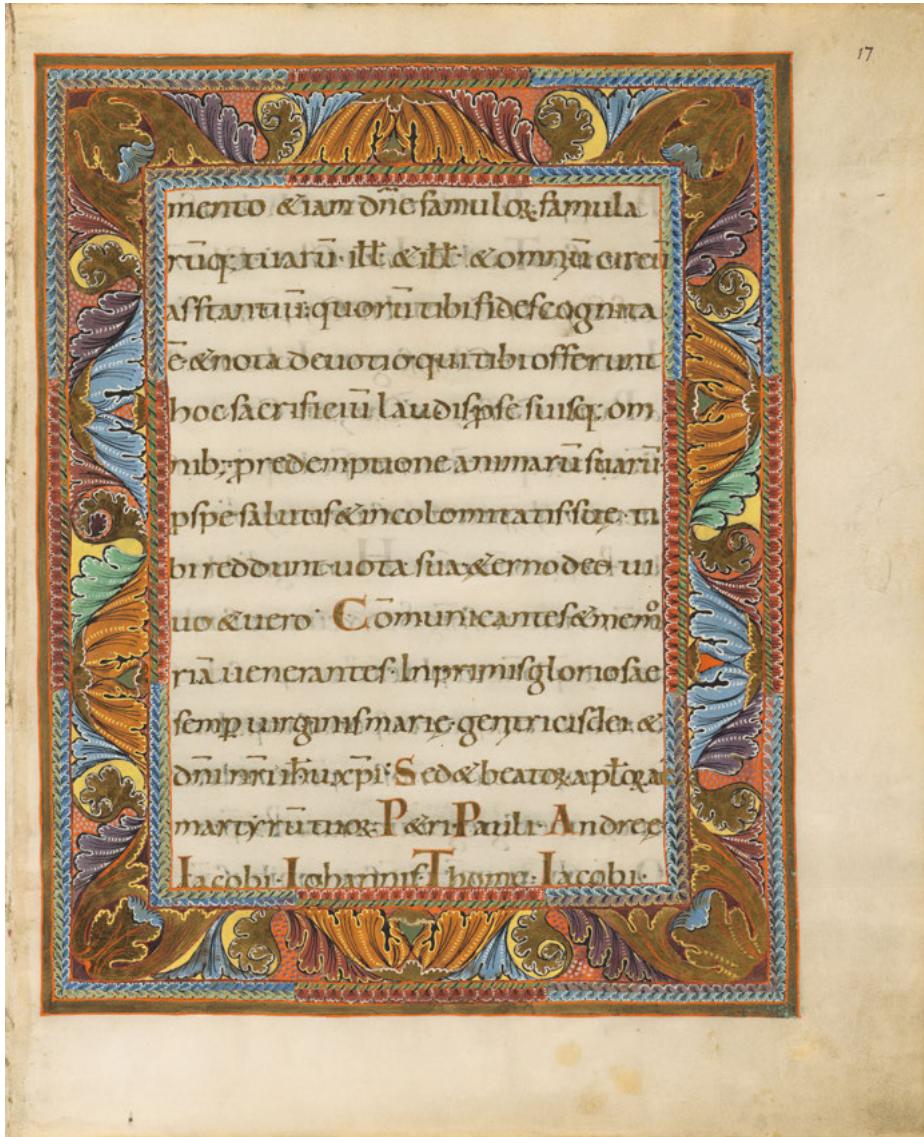 17
mento &iam dn̄e famuloꝝ famula
rūqꝫ tuarū· ill̄ & ill̄· & omniū circū
asstantiū· quorū tibi fides cognita
ē· & nota deuotio qui tibi offerunt
hoc sacrificiū laudis ꝓ se suisqꝫ om
nibꝫ· ꝓ redemptione animarū suarū·
ꝓ spe salutis & incolomitatis suę· ti
bi reddunt uota sua· &erno deo ui
uo & uero· Cōmunicantes & memo
riā uenerantes· Inprimis gloriosae
semꝑ uirginis marie· genitricis dei &
dn̄i nr̄i ih̄u xp̄i· Sed & beatoꝝ apl̄oꝝ ac
martyrū tuoꝝ· P&ri Pauli· Andreę·
Iacobi· Iohannis Thomę· Iacobi·